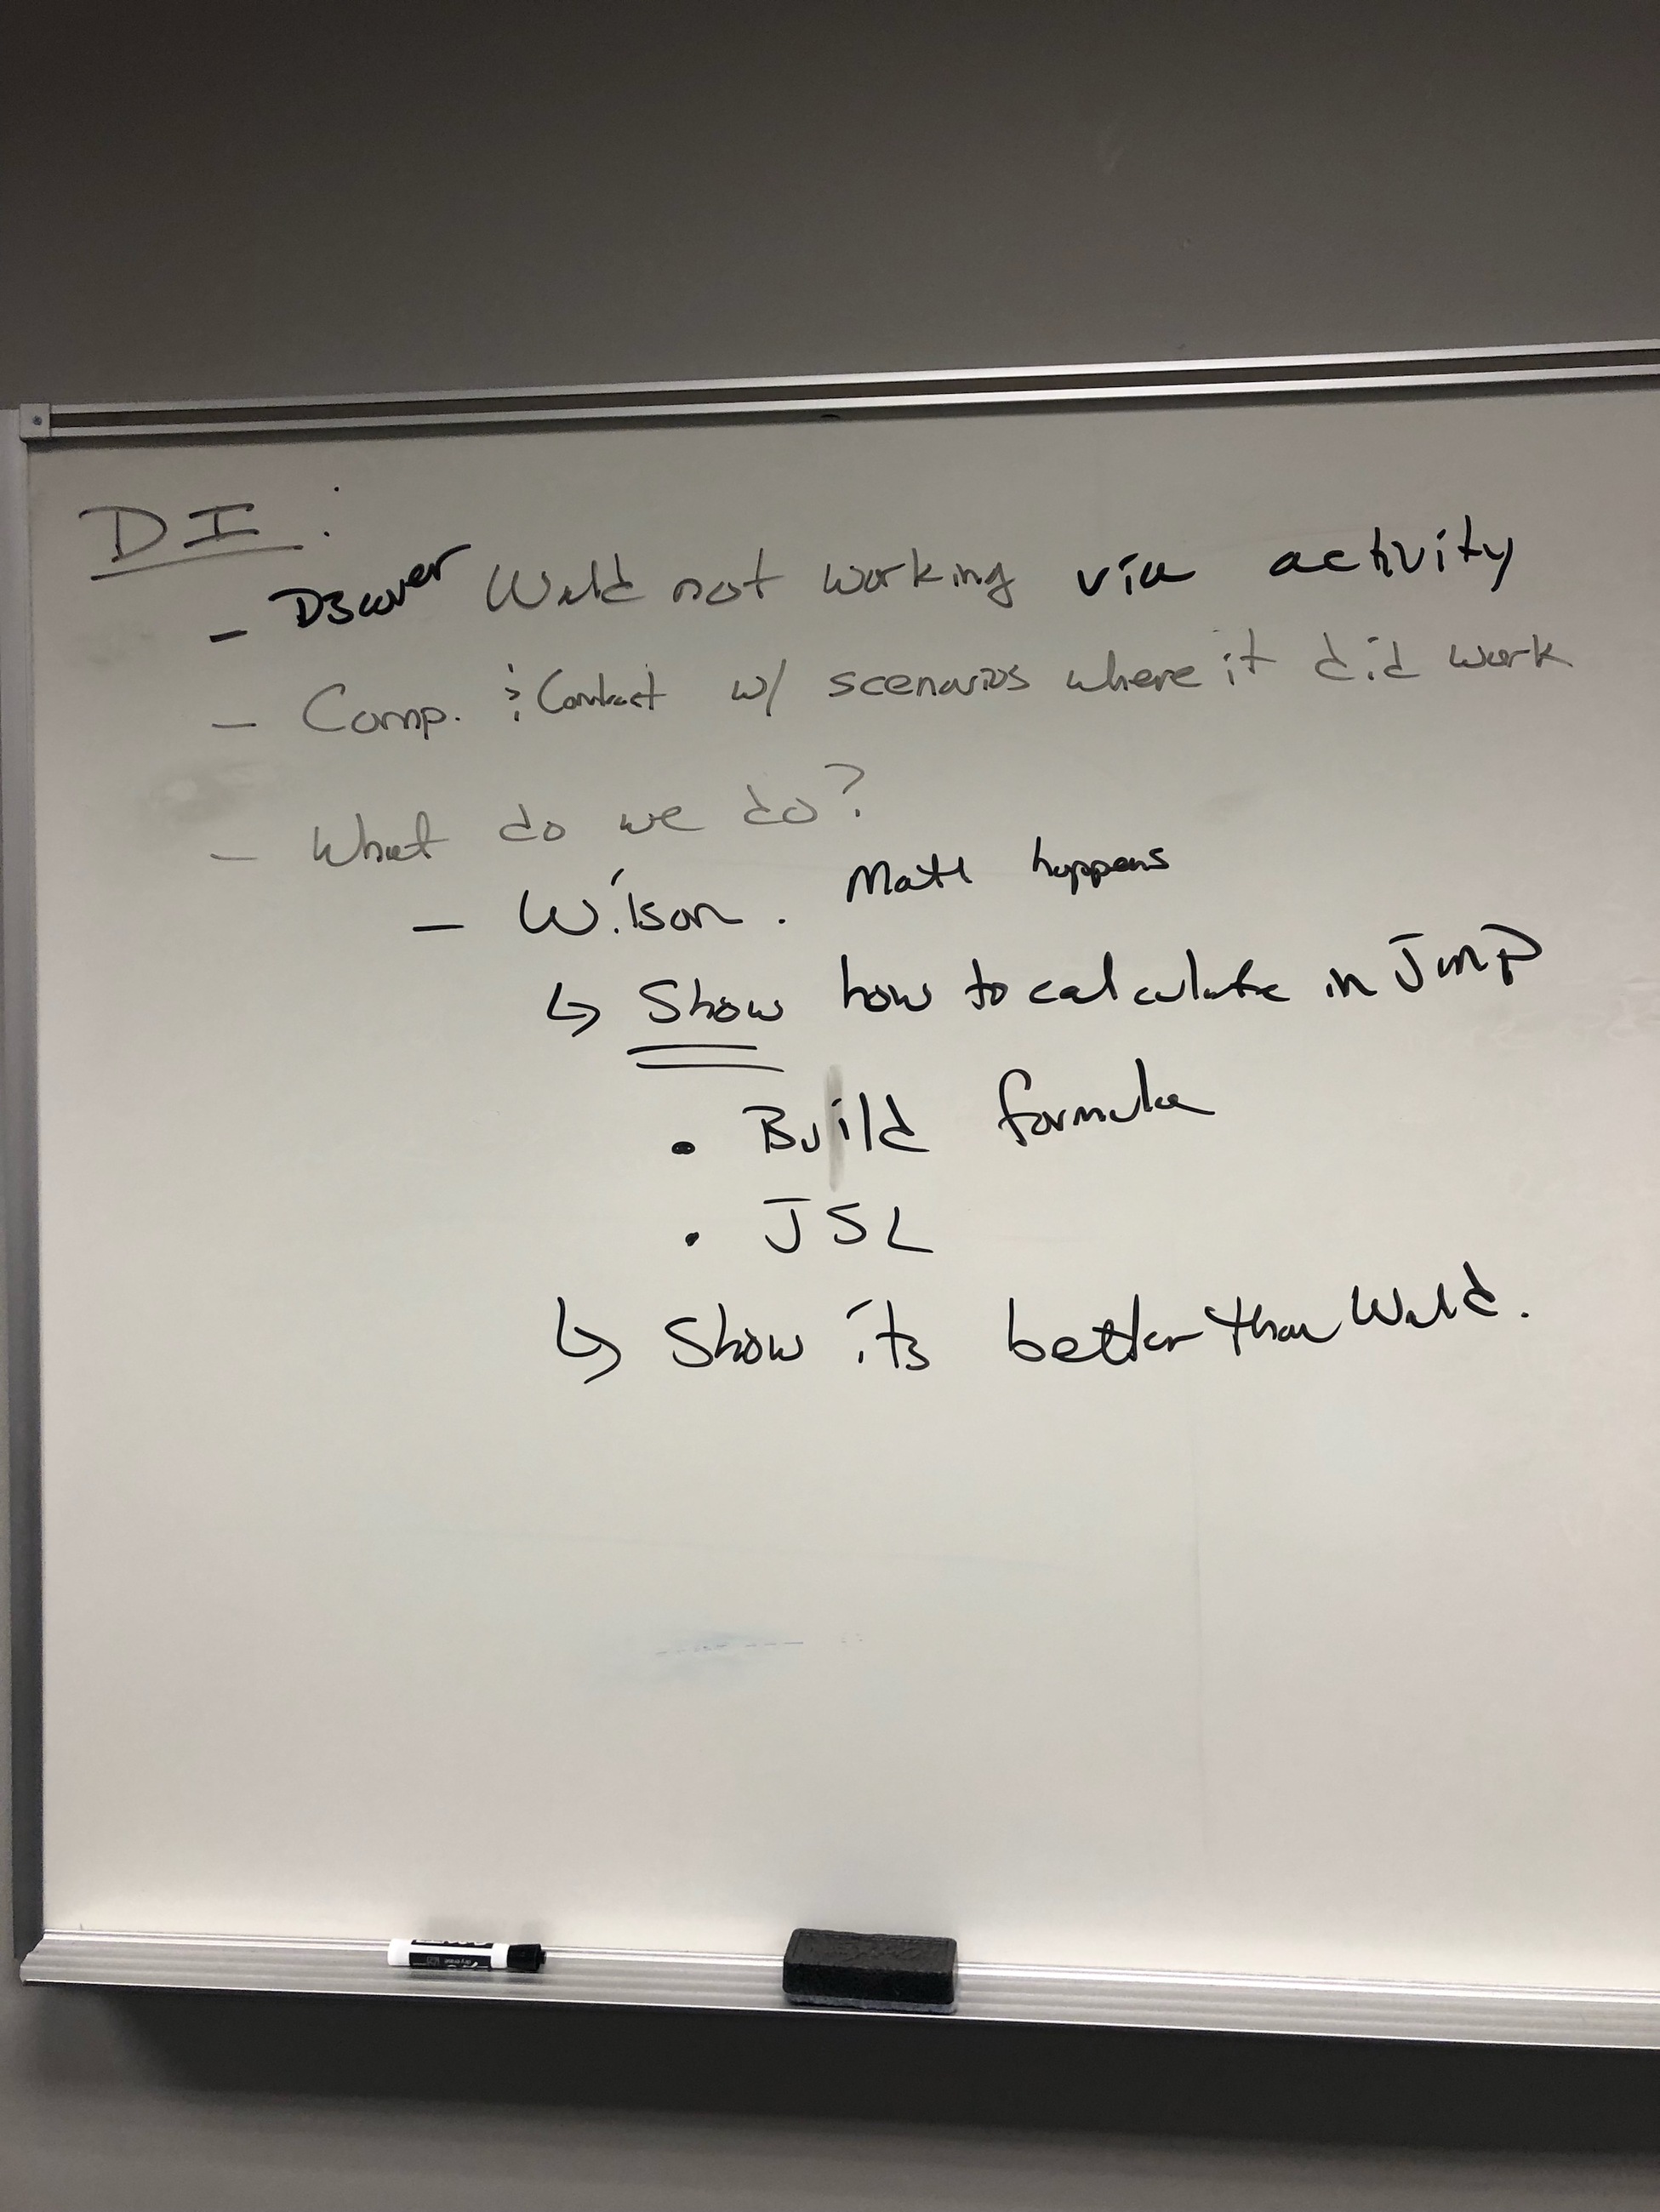 DI:
- Discover Wald not working via activity
- Comp. & Contrast w/ scenarios where it did work
- What do we do?
- Wilson. Math happens
↳ Show how to calculate in JMP
• Build formula
• JSL
↳ Show its better than Wald.